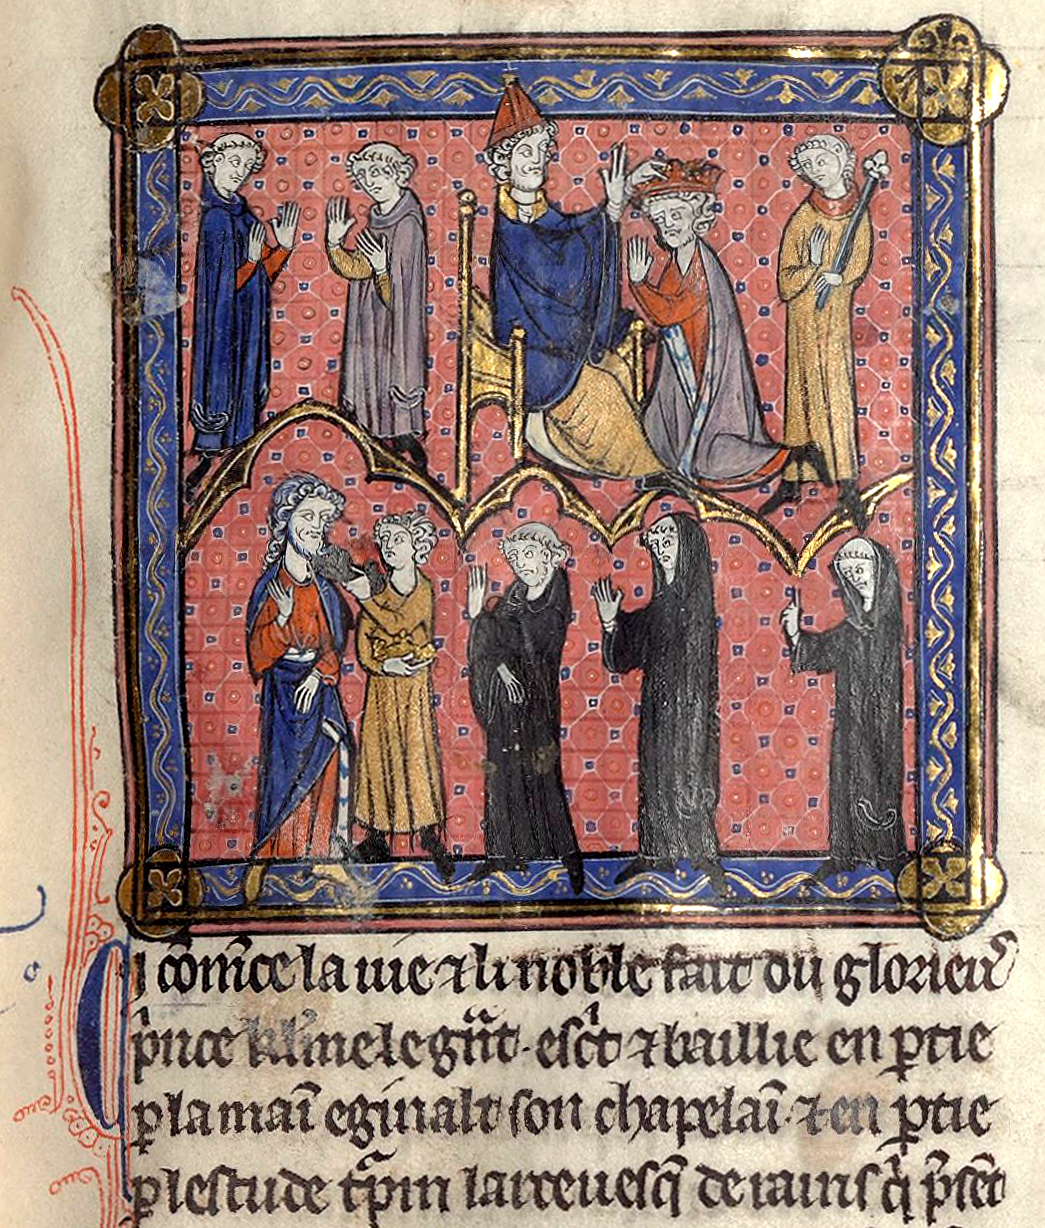 Ci cōm̄ce la uie ⁊ li noble fait du glorieus
p̄nce kl̄mele gn̄t. esc̄t ⁊ baillie en ꝑtie
ꝑ la maī eginalt son chapelaī. ⁊ en ꝑtie
ꝑ lestude t̄pin larceuesq̄ de rains q̄ p̄sēt